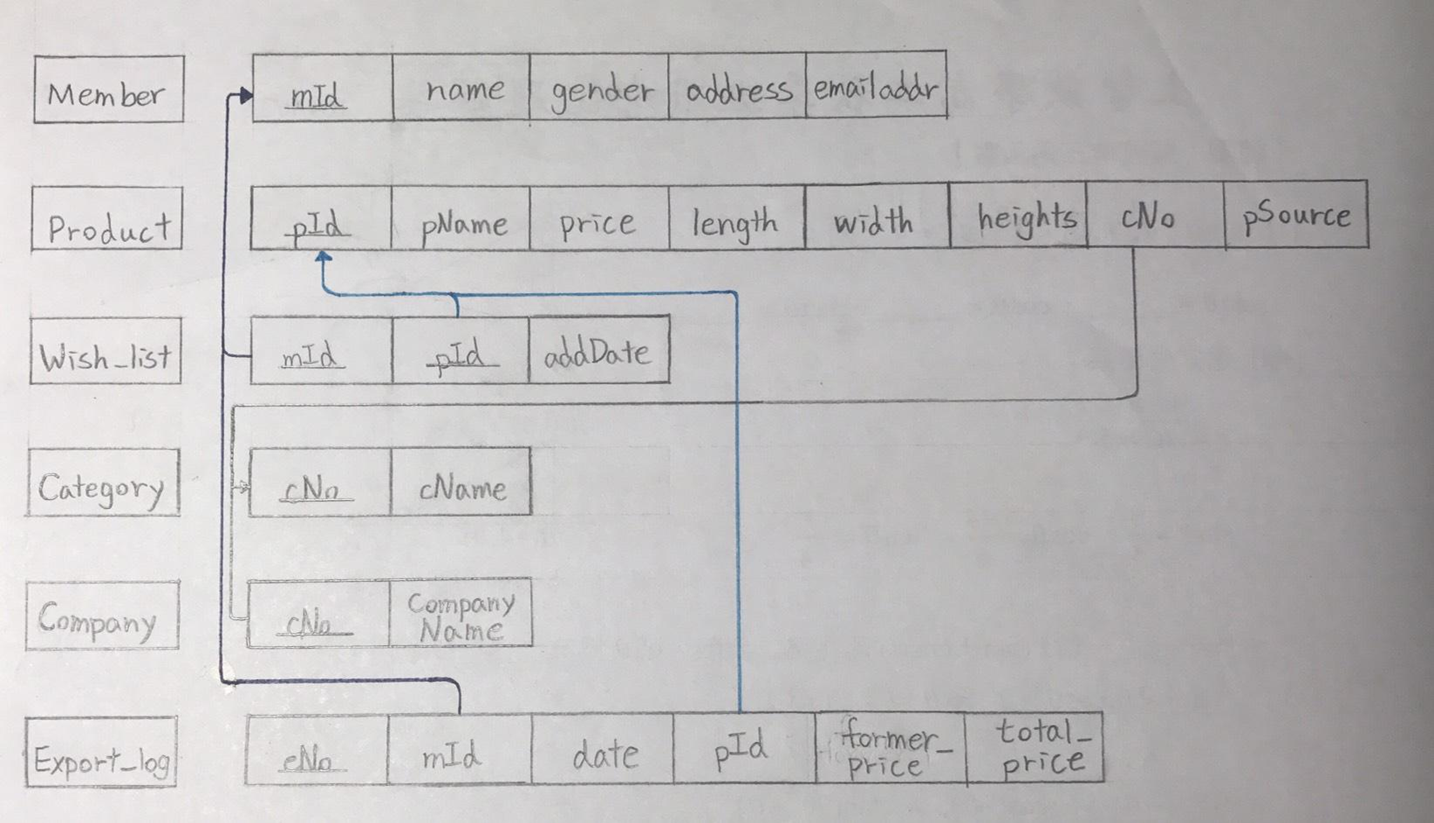 Member mId name gender address emailaddr
Product pId pName price length width heights cNo pSource
Wish_list mId pId addDate
Category cNo cName
Company cNo Company Name
Export_log eNo mId date pId former_price total_price